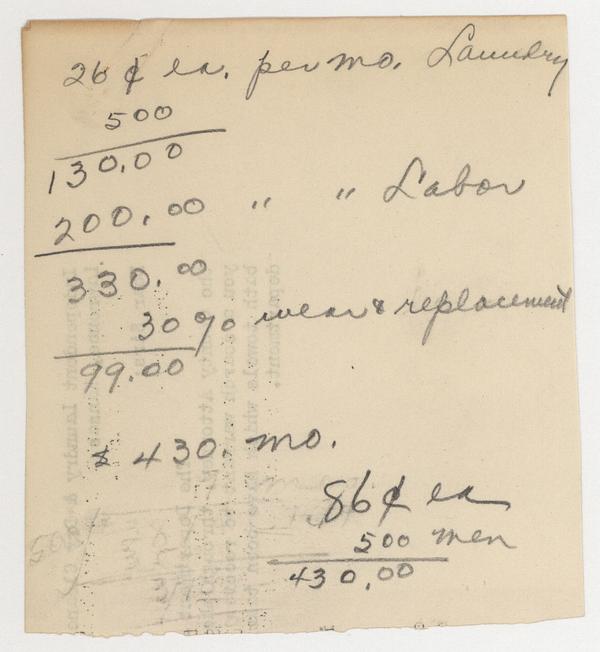 26 ¢ ea. per mo. Laundry
500
130.00
200.00 " " Labor
330.00
30% wear & replacement
99.00
$ 430. mo.
.86¢ ea
500 men
430.00